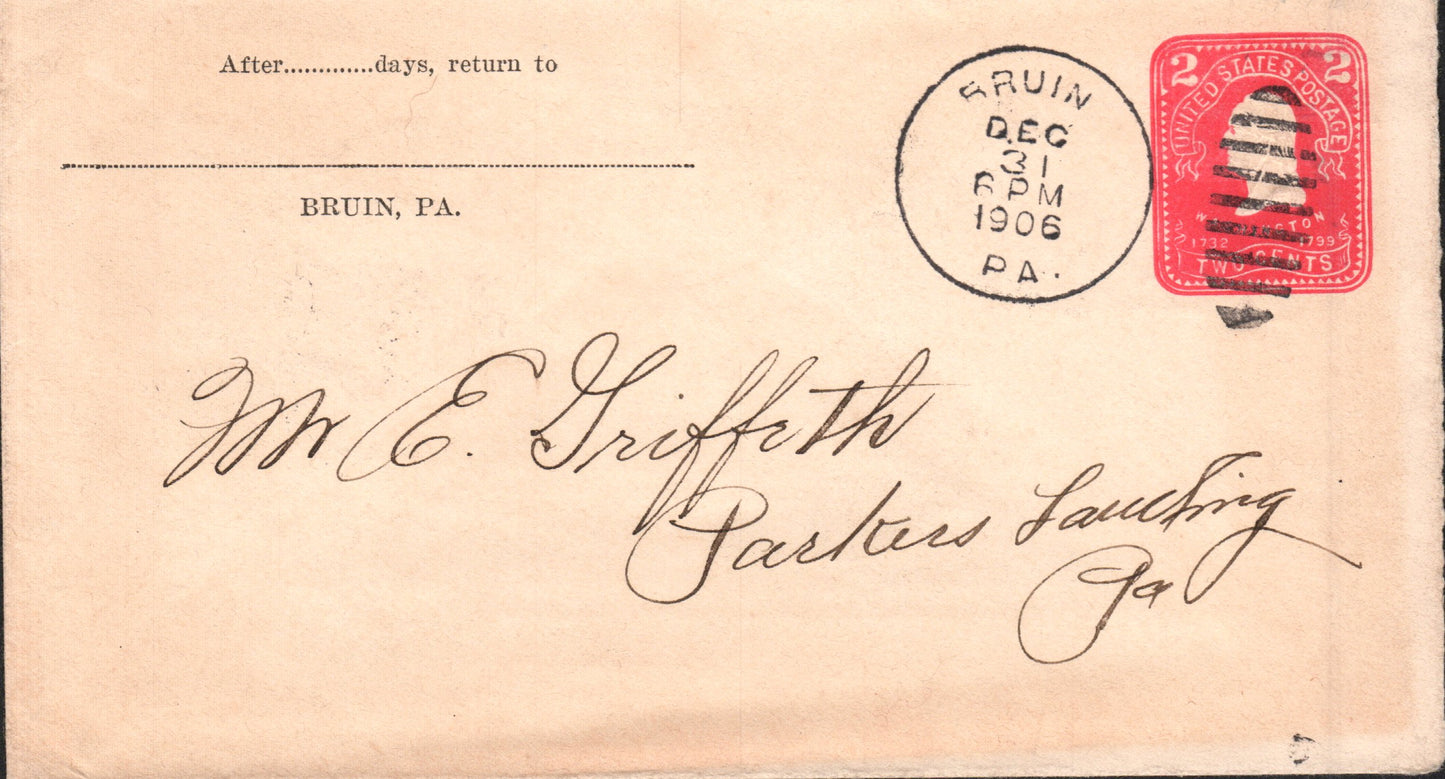 After.............days, return to
BRUIN, PA.
BRUIN
DEC
31
6 PM
1906
PA.
2 2
UNITED STATES POSTAGE
1732 1799
TWO CENTS
Mr E. Griffeth
Parkers Landing
Pa